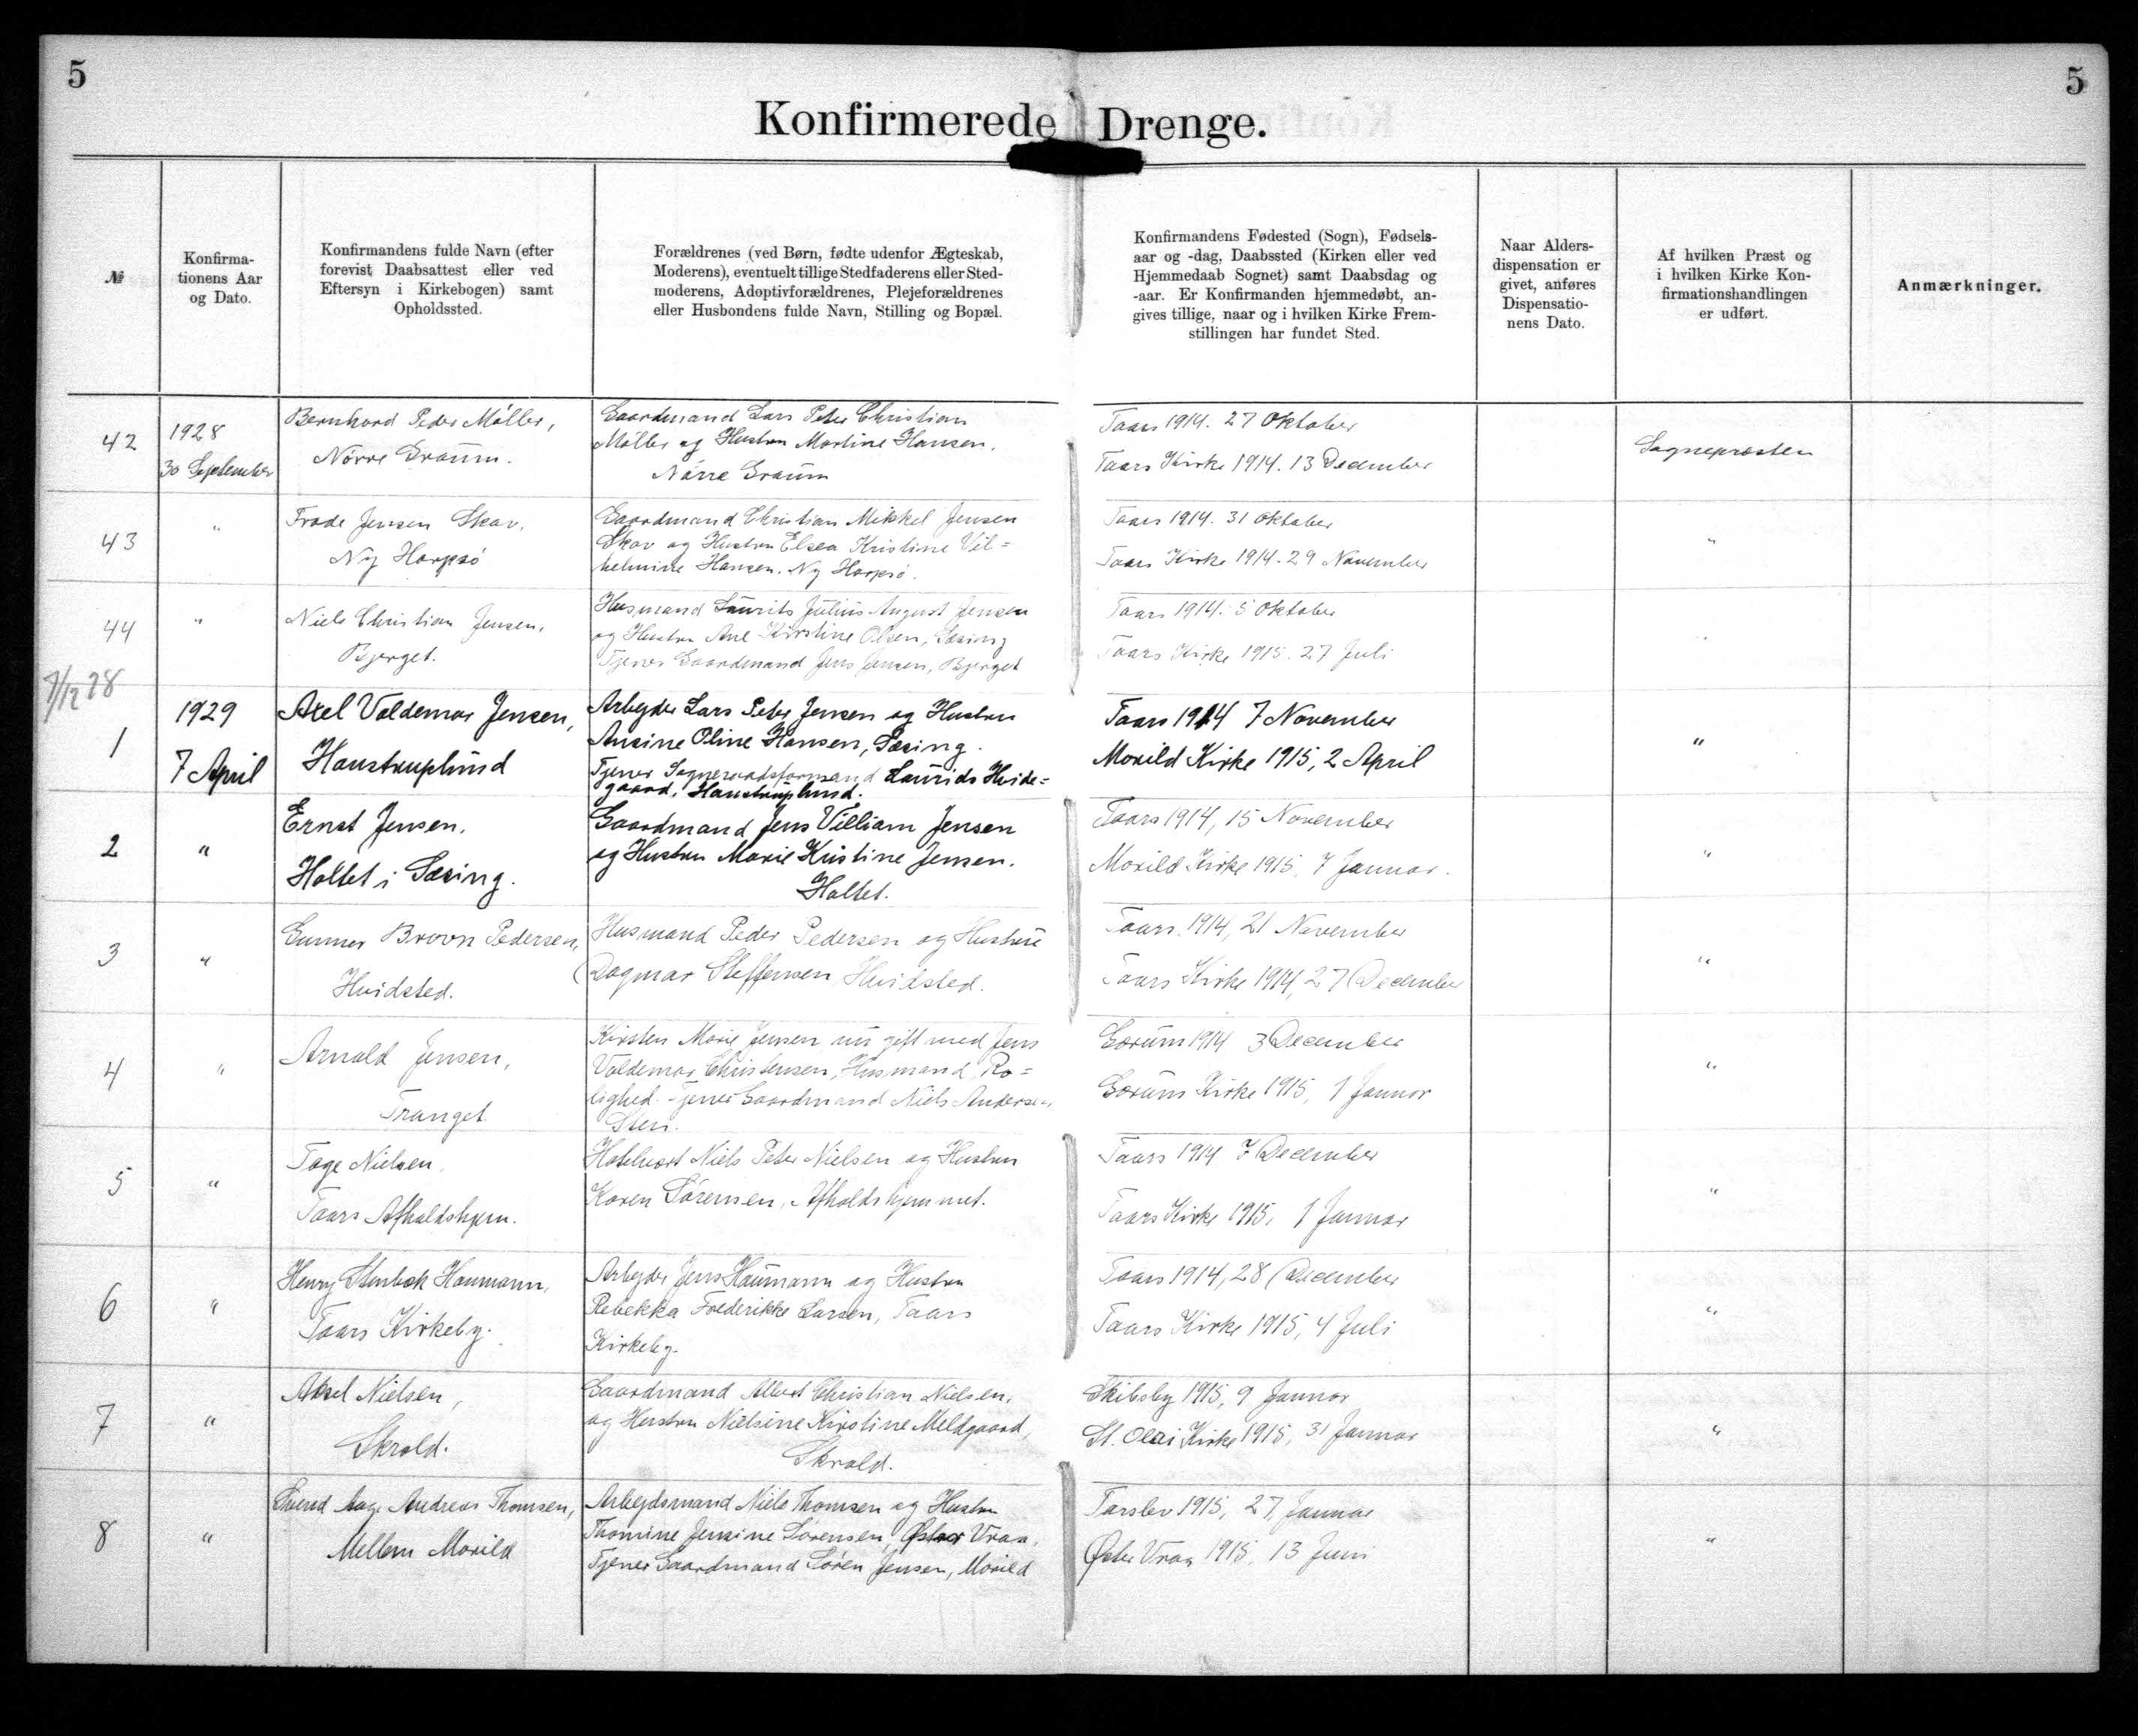 5
5
Konfirmerede Drenge.
№
Konfirma-
tionens Aar
og Dato.
Konfirmandens fulde Navn (efter
forevist Daabsattest eller ved
Eftersyn i Kirkebogen) samt
Opholdssted.
Forældrenes (ved Børn, fødte udenfor Ægteskab,
Moderens), eventuelt tillige Stedfaderens eller Sted-
moderens, Adoptivforældrenes, Plejeforældrenes
eller Husbondens fulde Navn, Stilling og Bopæl.
Konfirmandens Fødested (Sogn), Fødsels-
aar og -dag, Daabssted (Kirken eller ved
Hjemmedaab Sognet) samt Daabsdag og
-aar. Er Konfirmanden hjemmedøbt, an-
gives tillige, naar og i hvilken Kirke Frem-
stillingen har fundet Sted.
Naar Alders-
dispensation er
givet, anføres
Dispensatio-
nens Dato.
Af hvilken Præst og
i hvilken Kirke Kon-
firmationshandlingen
er udført.
Anmærkninger.
42
1928
30 September
Bernhard Peder Møller,
Nørre Graum.
Gaardmand Lars Peter Christian
Møller og Hustru Martine Hansen.
Nørre Graum
Taars 1914. 27 Oktober
Taars Kirke 1914. 13 December
Sognepræsten
43
"
Frode Jensen Skav,
Ny Harpsø
Gaardmand Christian Mikkel Jensen
Skav og Hustru Elsea Kristine Vil=
helmine Hansen. Ny Harpsø.
Taars 1914. 31 Oktober
Taars Kirke 1914. 29 November
"
44
"
Niels Christian Jensen,
Bjerget.
Husmand Laurits Julius August Jensen
og Hustru Ane Kirstine Olsen, Sæsing
Tjener Gaardmand Jens Jensen, Bjerget
Taars 1914. 5 Oktober
Taars Kirke 1915. 27 Juli
"
7/12 28
1
1929
7 April
Axel Valdemar Jensen,
Haustruplund
Arbejder Lars Peter Jensen og Hustru
Ansine Oline Hansen, Sæsing.
Tjener Sogneraadsformand Laurids Hvide=
gaard, Haustruplund.
Taars 1914 7 November
Morild Kirke 1915, 2 April
"
2
"
Ernst Jensen,
Holtet i Sæsing.
Gaardmand Jens Villiam Jensen
og Hustru Marie Kristine Jensen.
Holtet.
Taars 1914, 15 November
Morild Kirke 1915, 7 Januar.
"
3
"
Gunner Broon Pedersen,
Hvidsted.
Husmand Peder Pedersen og Hustru
Dagmar Steffensen Hvidsted.
Taars 1914, 21 November
Taars Kirke 1914, 27 December
"
4
"
Arnold Jensen,
Tranget
Kirsten Marie Jensen nu gift med Jens
Valdemar Christensen, Husmand, Ro=
lighed. Tjener Gaardmand Niels Andersen
Gærum 1914 3 December
Gærum Kirke 1915, 1 Januar
"
5
"
Tage Nielsen,
Taars Afholdshjem.
Hotelvært Niels Peter Nielsen og Hustru
Karen Sørensen, Afholdshjemmet.
Taars 1914 7 December
Taars Kirke 1915, 1 Januar
"
6
"
Henry Stenbæk Haumann,
Taars Kirkeby.
Arbejder Jens Haumann og Hustru
Rebekka Frederikke Larsen, Taars
Kirkeby.
Taars 1914, 28 December
Taars Kirke 1915, 4 Juli
"
7
"
Aksel Nielsen,
Skrold.
Gaardmand Albert Christian Nielsen,
og Hustru Nielsine Kirstine Meldgaard,
Skrold.
Skibsby 1915, 9 Januar
St. Olai Kirke 1915, 31 Januar
"
8
"
Svend Aage Andreas Thomsen,
Mellem Morild
Arbejdsmand Niels Thomsen og Hustru
Thomine Jensine Sørensen, Øster Vraa.
Tjener Gaardmand Søren Jensen, Morild
Tørslev 1915, 27 Januar
Øster Vraa 1915, 13 Juni
"